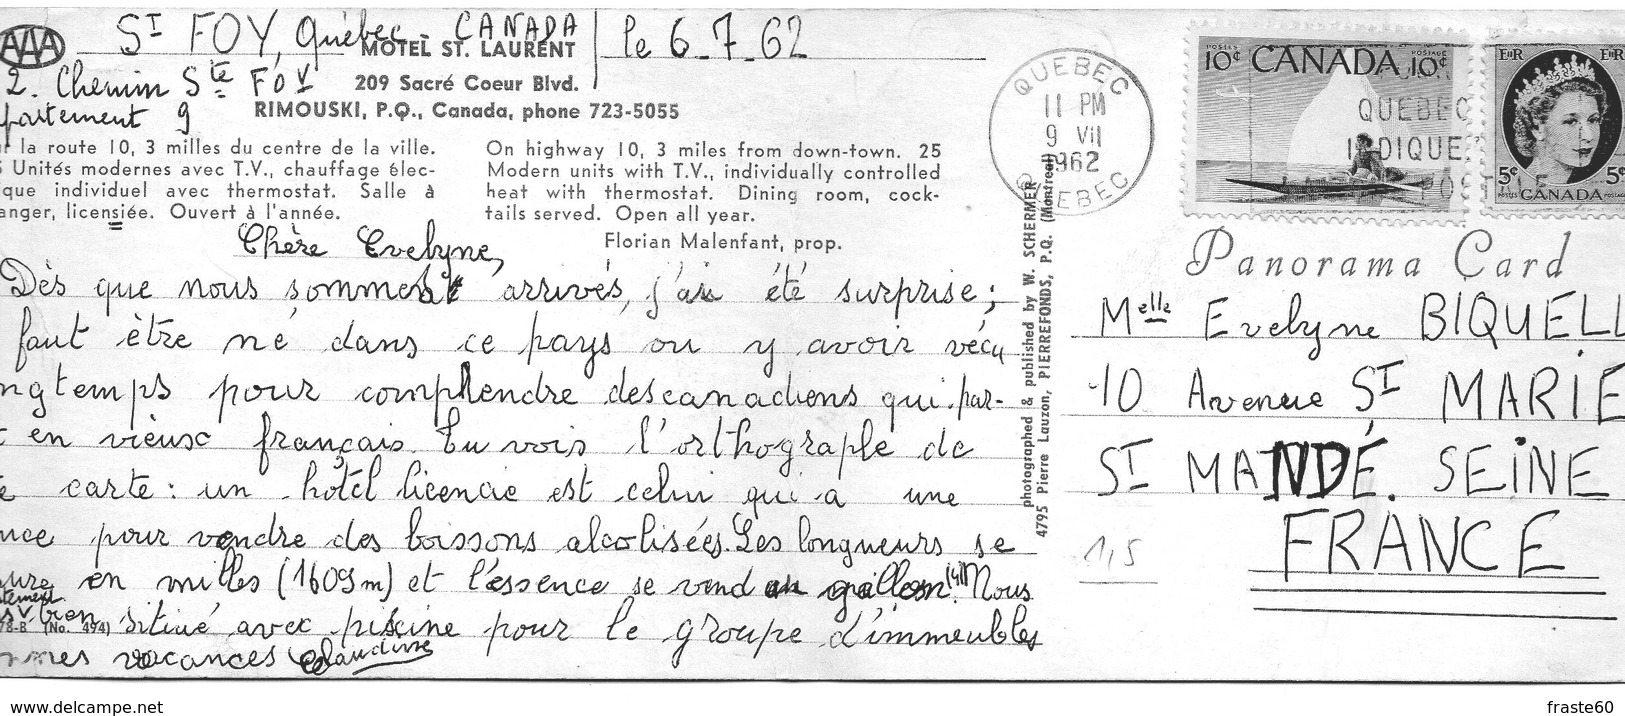 AAA
St FOY, Québec CANADA
le 6-7-62
2. Chemin Ste FOY
partement 9
MOTEL ST. LAURENT
209 Sacré Coeur Blvd.
RIMOUSKI, P.Q., Canada, phone 723-5055
la route 10, 3 milles du centre de la ville.
Unités modernes avec T.V., chauffage élec-
ique individuel avec thermostat. Salle à
anger, licensiée. Ouvert à l'année.
On highway 10, 3 miles from down-town. 25
Modern units with T.V., individually controlled
heat with thermostat. Dining room, cock-
tails served. Open all year.
Florian Malenfant, prop.
Chère Evelyne,
Dès que nous sommes arrivés, j'ai été surprise;
faut être né dans ce pays ou y avoir vécu
ngtemps pour comprendre des canadiens qui par-
t en vieux français. Tu vois l'orthographe de
e carte: un hôtel licencié est celui qui a une
nce pour vendre des boissons alcolisées. Les longueurs se
ure en milles (1609m) et l'essence se vend au gallon (4l). Nous
tement
s bien situé avec piscine pour le groupe d'immeubles
78-B (No. 494)
nnes vacances Claudine
photographed & published by W. SCHERMER
4795 Pierre Lauzon, PIERREFONDS, P.Q. (Montreal)
QUEBEC
11 PM
9 VII
1962
QUEBEC
POSTES POSTAGE
10¢ CANADA 10¢
QUEBEC
INDIQUE
E II R E II R
5¢ 5¢
POSTES CANADA POSTAGE
Panorama Card
Melle Evelyne BIQUELL
10 Avenue St MARIE
St MANDÉ. SEINE
FRANCE
1,5
www.delcampe.net
fraste60